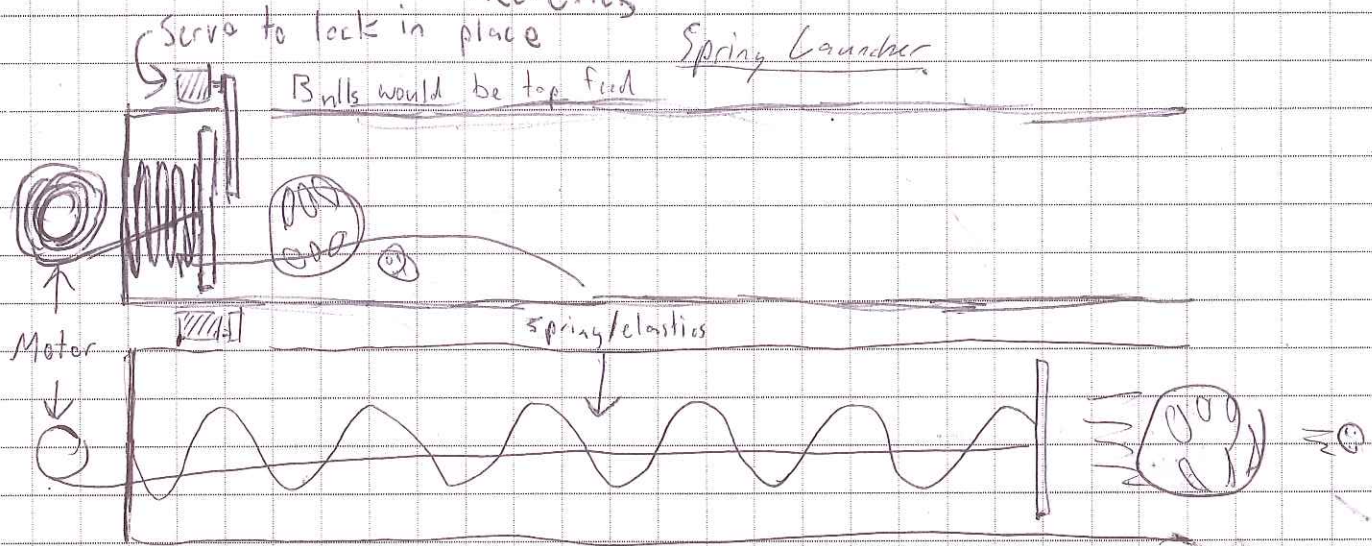 Servo to lock in place
Spring Launcher
Balls would be top fed
Motor
spring/elastics